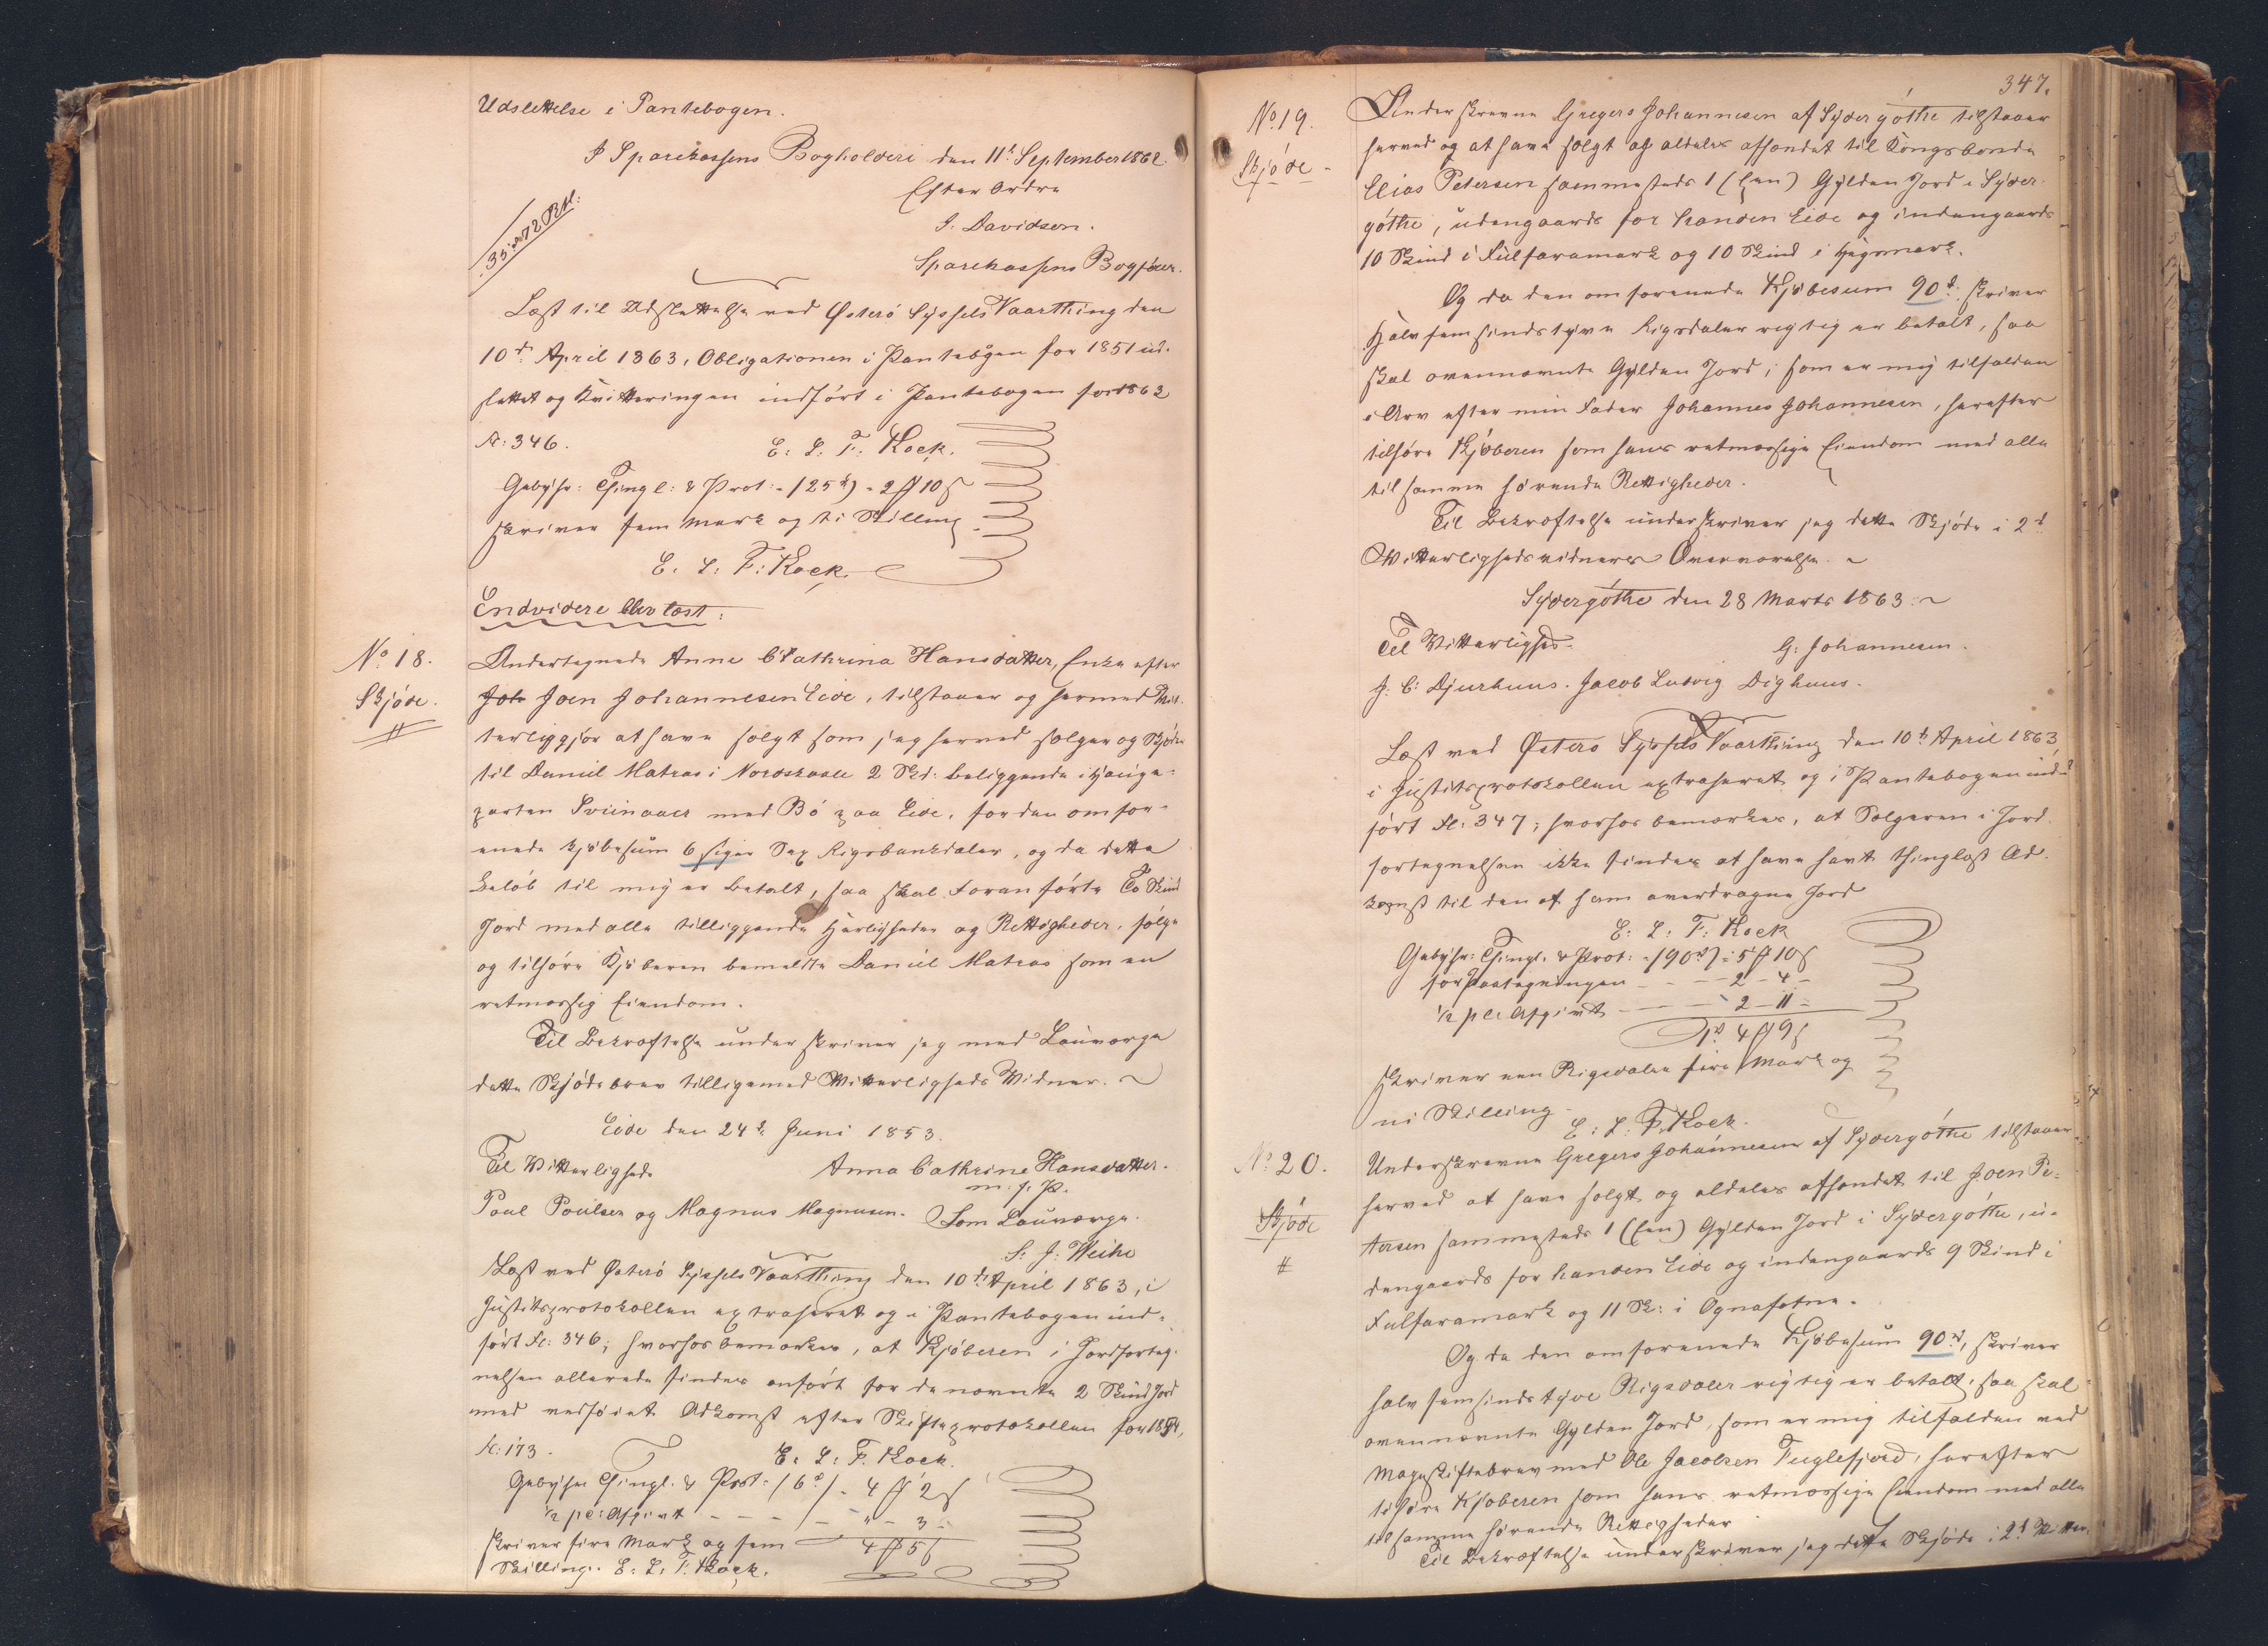 Udslettelse i Pantebogen.
I Sparekassens Bogholderi den 11t September 1862.
Efter Ordre
J. Davidsen.
Sparekassens Bogfører.
Læst til Udslettelse ved Østerø Syssels Vaarthing den
10de April 1863, Obligationen i Pantebogen for 1851 ud-
slettet og Kvitteringen indført i Pantebogen for 1862
Fl: 346.
E: L: F: Kock.
Gebyhr: Thingl: & Prot:
skriver fem Mark og ti Skilling
E: L: F: Kock.
Endvidere blev læst:
No 18.
Skjøde.
Undertegnede Anne Cathrina Hansdatter, Enke efter
Joh Joen Johannesen Eide, tilstaaer og hermed Vit-
terliggjør at have solgt som jeg herved sælger og Skjøder
til Daniel Matras i Nordskaale 2 Skd: beliggende i Hauge-
parten Sviinaaer med Bø paa Eide, for den omfor-
enede Kjøbesum 6 siger Sex Rigsbankdaler, og da dette
Beløb til mig er betalt, saa skal foranførte To Skind
Jord med alle tilliggende Herligheder og Rettigheder, følge
og tilhøre Kjøberen bemeldte Daniel Matras som en
retmæssig Eiendom.
Til Bekræftelse underskriver jeg med Lauværge
dette Skjødebrev tilligemed Vitterligheds Vidner.
Eide den 24d Juni 1853.
Til Vitterlighed
Anna Cathrine Hansdatter.
m. f. P.
Poul Poulsen og Magnus Magnusen.
Som Lauværge.
S: J: Weihe
Læst ved Østerø Syssels Vaarthing den 10de April 1863, i
Justitsprotokollen extraheret og i Pantebogen ind-
ført Fl: 346; hvorhos bemærkes, at Kjøberen i Jordforteg-
nelsen allerede findes anført for de nævnte 2 Skind Jord
med vedføiet Adkomst efter Skifteprotokollen for
fl: 173.
E: L: F. Kock.
Gebyhr Thingl. & Prot: (6d) - 4 # 2 ß
½ pc: Afgivt - - - - „ - 3 -
skriver fire Mark og fem 4 # 5 ß
Skilling. E: L: F. Kock.
347.
No 19.
Skjøde
Underskrevne Gregers Johannesen af Sydergøthe tilstaaer
herved og at have solgt og aldeles afhændet til Kongsbonde
Elias Petersen sammesteds 1 (Een) Gylden Jord i Syder-
gøthe, udengaards for handen Eide og indengaards
10 Skind i Fulfaramark og 10 Skind i Hægomark.
Og da den omforenede Kjøbesum 90d skriver
Halvfemsindstyve Rigsdaler rigtig er betalt, saa
skal ovennævnte Gylden Jord, som er mig tilfalden
i Arv efter min Fader Johannes Johannesen, herefter
tilhøre Kjøberen som hans retmæssige Eiendom med alle
til samme hørende Rettigheder.
Til Bekræftelse underskriver jeg dette Skjøde i 2d
Vitterlighedsvidners Overværelse.
Sydergøthe den 28 Marts 1863.
Til Vitterlighed
G: Johannesen.
J: C: Djurhuus. Jacob Ludvig Dighuus.
Læst ved Østerø Syssels Vaarthing den 10de April 1863,
i Justitsprotokollen extraheret og i Pantebogen ind-
ført Fl: 347; hvorhos bemærkes, at Sælgeren i Jord-
fortegnelsen ikke findes at have havt thinglæst Ad-
komst til den af ham overdragne Jord
E: L: F: Kock
Gebyhr: Thingl. & Prot: (90d) = 5 # 10 ß
for Paategningen - - - 2 - 4 -
½ pc: Afgivt - - - 2 - 11 -
1d 4 # 9 ß
skriver een Rigsdaler fire Mark og
ni Skilling
E: L: F. Kock.
No 20.
Skjøde
Underskrevne Gregers Johannesen af Sydergøthe tilstaaer
herved at have solgt og aldeles afhændet til Joen Pe-
tersen sammesteds 1 (Een) Gylden Jord i Sydergøthe, u-
dengaards for handen Eide og indengaards 9 Skind i
Fulfaramark og 11 Sk: i Ognafotne.
Og da den omforenede Kjøbesum 90d, skriver
halvfemsindstyve Rigsdaler rigtig er betalt, saa skal
ovennævnte Gylden Jord, som er mig tilfalden ved
Mageskiftebrev med Ole Jacobsen Fuglefjord, herefter
tilhøre Kjøberen som hans retmæssige Eiendom med alle
til samme hørende Rettigheder
Til Bekræftelse underskriver jeg dette Skjøde i 2d Vitter-